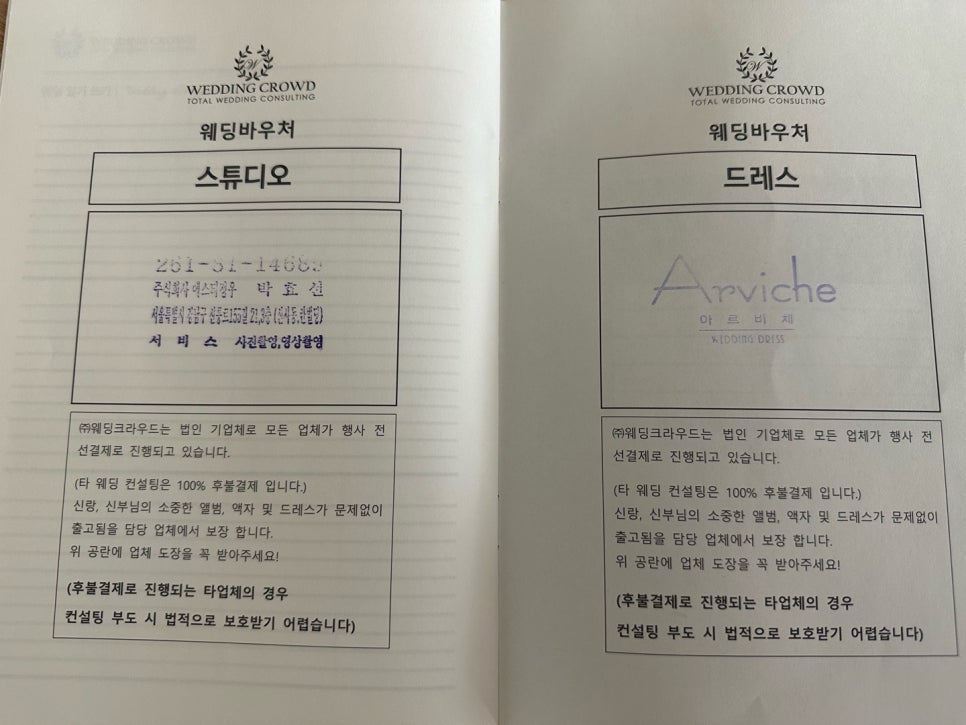 WEDDING CROWD
TOTAL WEDDING CONSULTING
웨딩바우처
스튜디오
박효선
서비스 사진촬영,영상촬영
㈜웨딩크라우드는 법인 기업체로 모든 업체가 행사 전
선결제로 진행되고 있습니다.
(타 웨딩 컨설팅은 100% 후불결제 입니다.)
신랑, 신부님의 소중한 앨범, 액자 및 드레스가 문제없이
출고됨을 담당 업체에서 보장 합니다.
위 공란에 업체 도장을 꼭 받아주세요!
(후불결제로 진행되는 타업체의 경우
컨설팅 부도 시 법적으로 보호받기 어렵습니다)
WEDDING CROWD
TOTAL WEDDING CONSULTING
웨딩바우처
드레스
Arviche
아르비체
WEDDING DRESS
㈜웨딩크라우드는 법인 기업체로 모든 업체가 행사 전
선결제로 진행되고 있습니다.
(타 웨딩 컨설팅은 100% 후불결제 입니다.)
신랑, 신부님의 소중한 앨범, 액자 및 드레스가 문제없이
출고됨을 담당 업체에서 보장 합니다.
위 공란에 업체 도장을 꼭 받아주세요!
(후불결제로 진행되는 타업체의 경우
컨설팅 부도 시 법적으로 보호받기 어렵습니다)